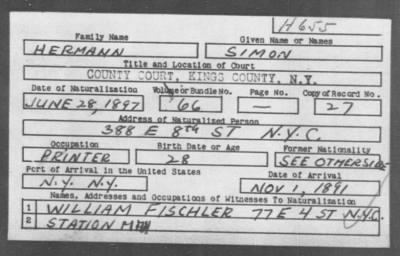 H655
Family Name Given Name or Names
HERMANN SIMON
Title and Location of Court
COUNTY COURT, KINGS COUNTY, N.Y.
Date of Naturalization Volume or Bundle No. Page No. Copy of Record No.
JUNE 28, 1897 66 — 27
Address of Naturalized Person
388 E 8TH ST N.Y.C.
Occupation Birth Date or Age Former Nationality
PRINTER 28 SEE OTHERSIDE
Port of Arrival in the United States Date of Arrival
N.Y. N.Y. NOV 1, 1891
Names, Addresses and Occupations of Witnesses To Naturalization
1 WILLIAM FISCHLER 77 E 4 ST N.Y.C.
2 STATION